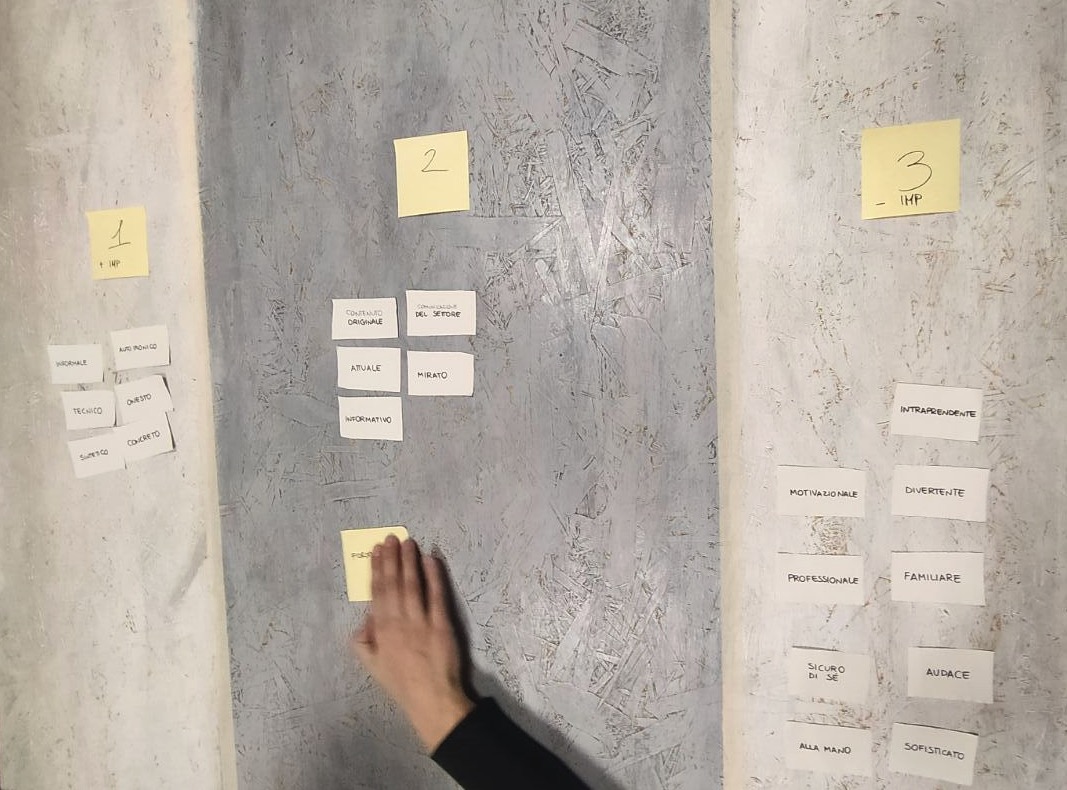 1
+ IMP
INFORMALE
AUTOIRONICO
TECNICO
ONESTO
SINTETICO
CONCRETO
2
CONTENUTO
ORIGINALE
COMUNICAZIONE
DEL SETTORE
ATTUALE
MIRATO
INFORMATIVO
3
- IMP
INTRAPRENDENTE
MOTIVAZIONALE
DIVERTENTE
PROFESSIONALE
FAMILIARE
SICURO
DI SÉ
AUDACE
ALLA MANO
SOFISTICATO